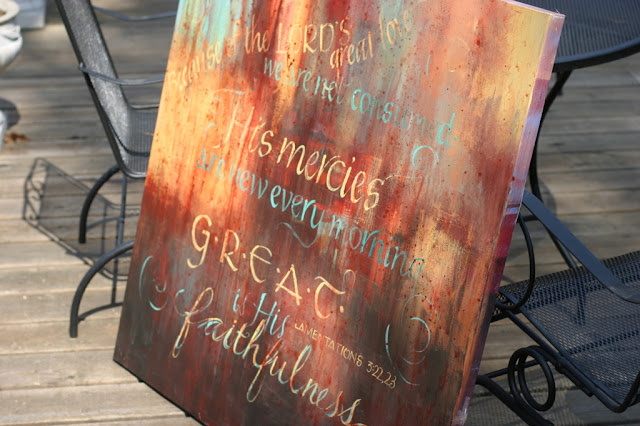 Because of the LORD'S great love
we are not consumed.
His mercies
are new every morning
G·R·E·A·T·
is His
LAMENTATIONS 3:22,23
faithfulness